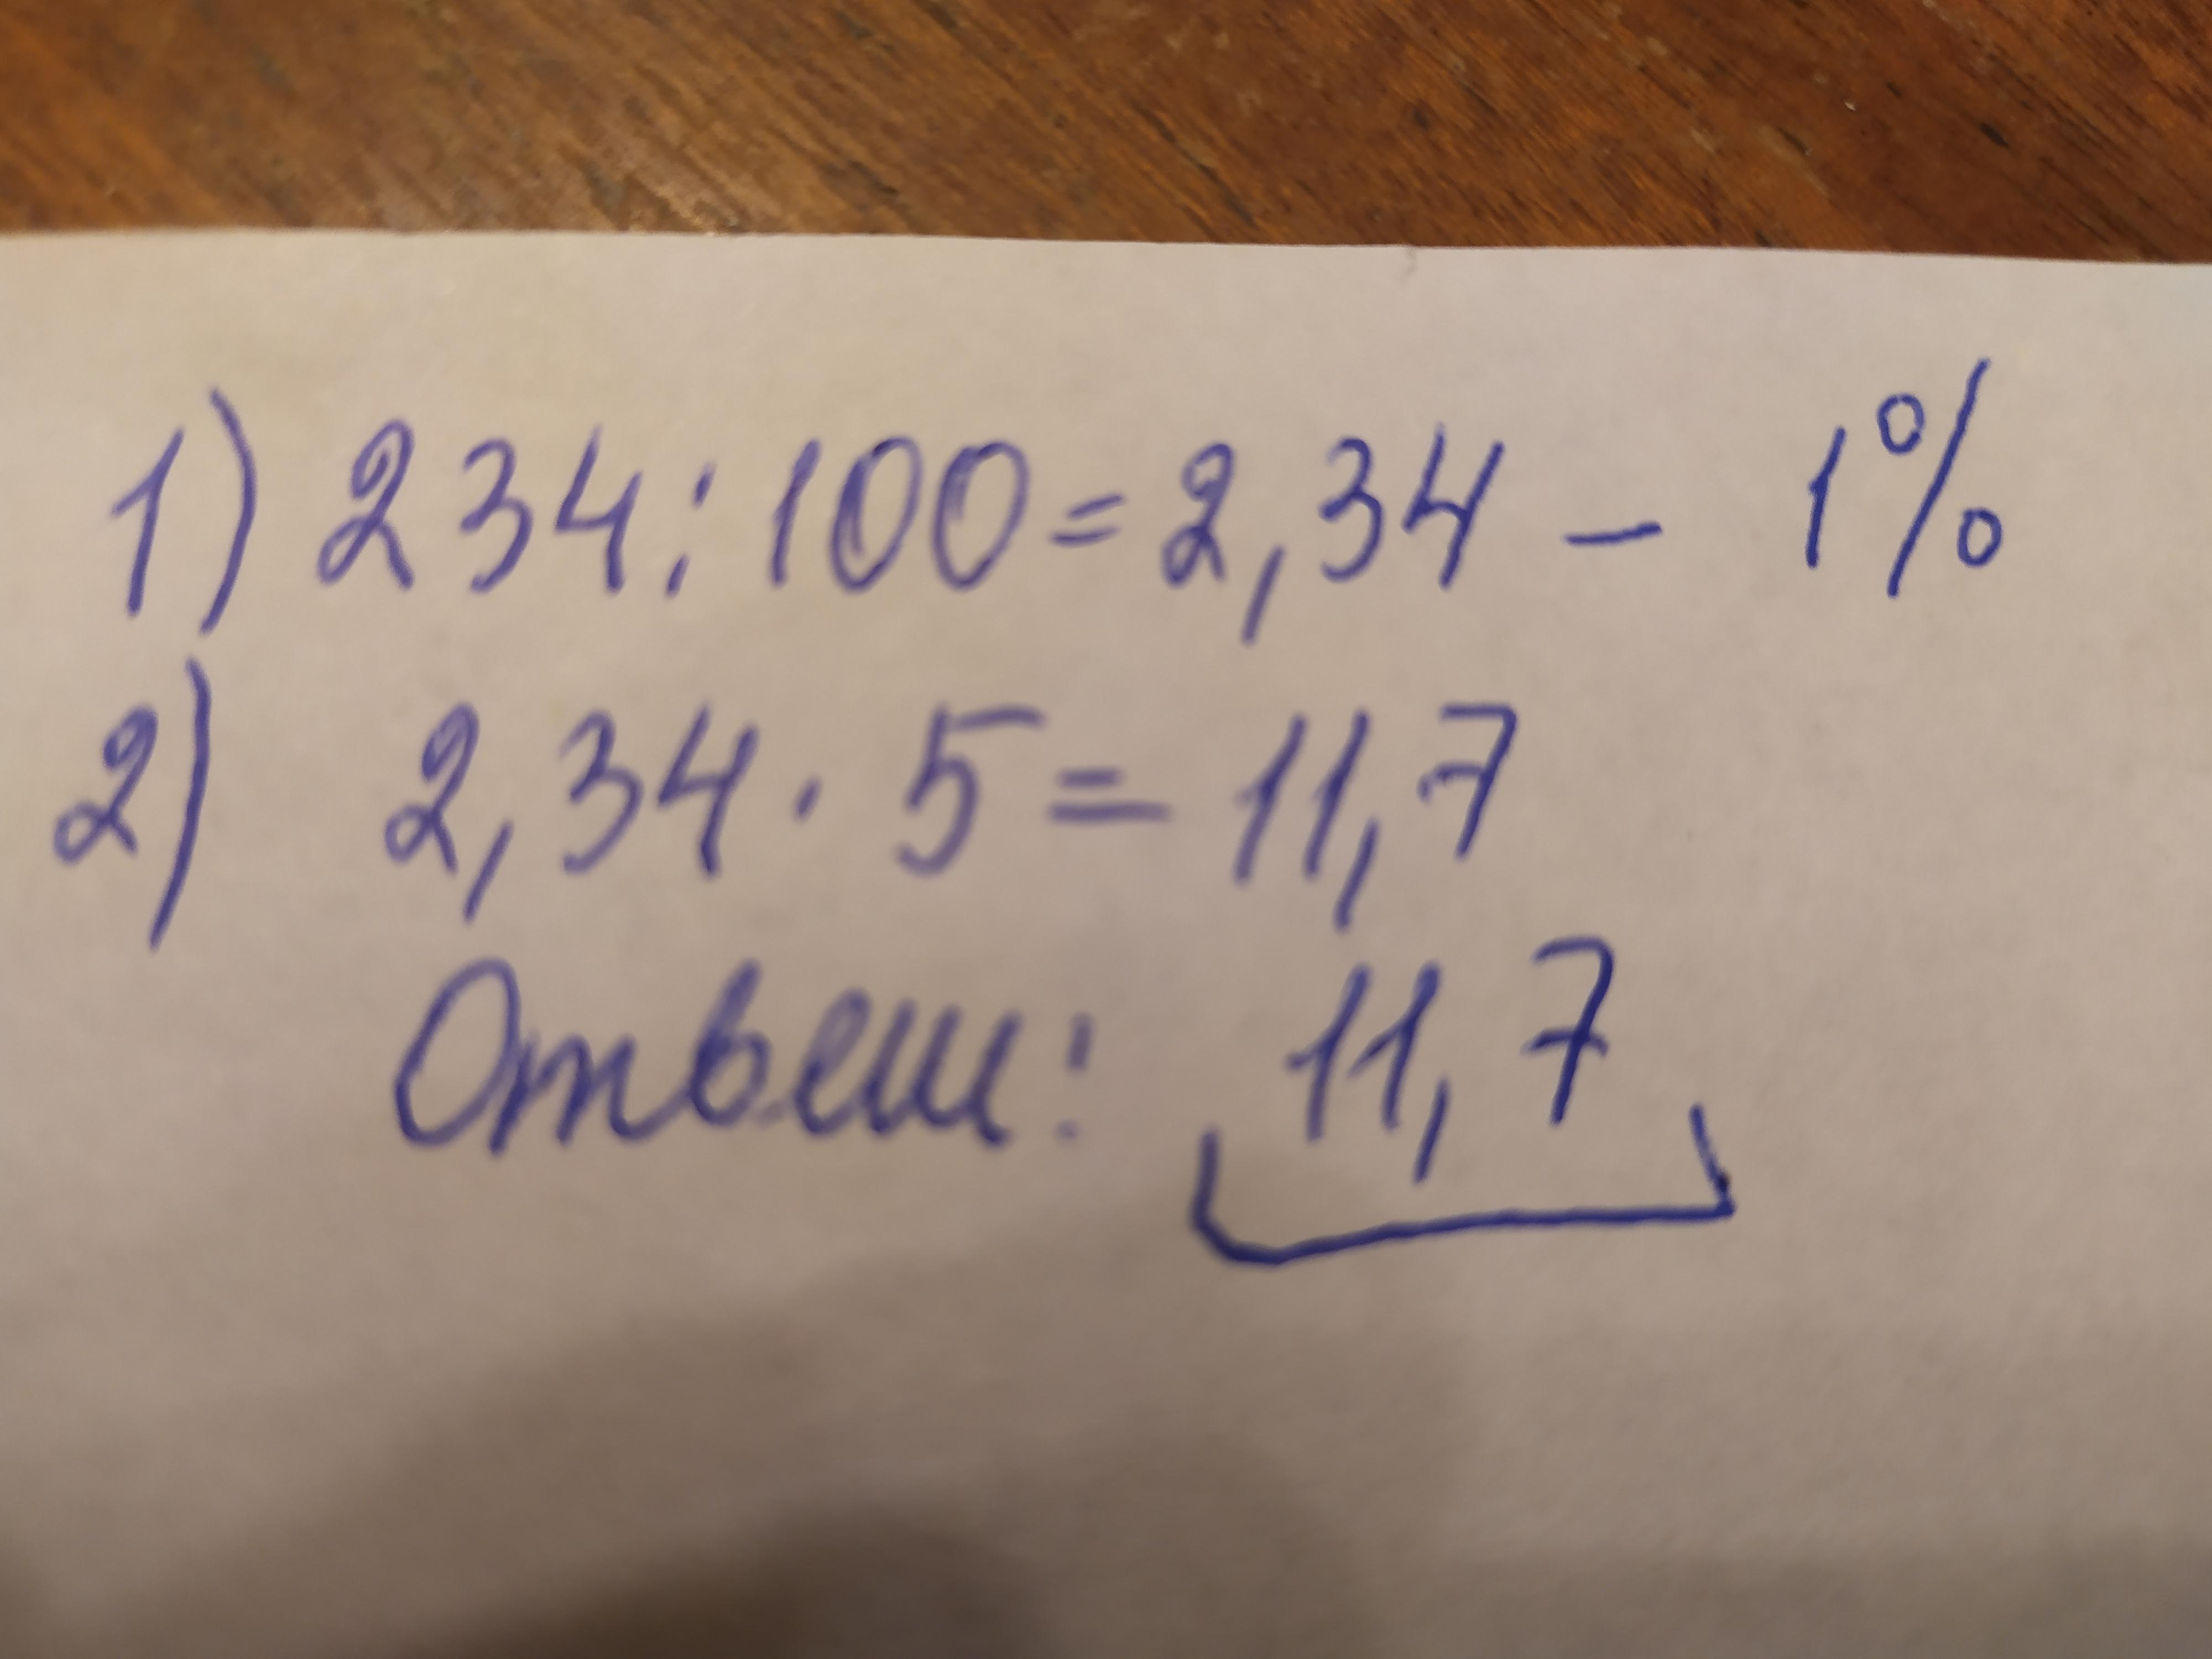 1) 234:100=2,34 - 1%
2) 2,34 · 5=11,7
Ответ: 11,7